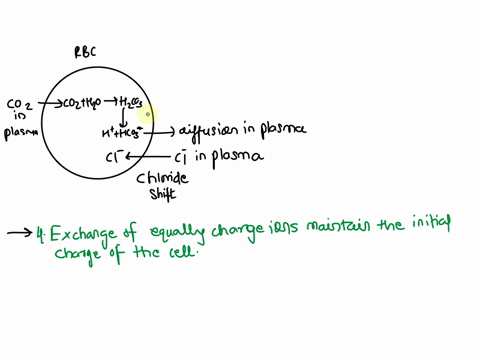 RBC
CO2 in plasma → CO2+H2O → H2CO3
↓
H⁺+HCO3⁻ → diffusion in plasma
Cl⁻ ← Cl⁻ in plasma
Chloride
Shift
→ 4. Exchange of equally charge ions maintain the initial
charge of the cell.